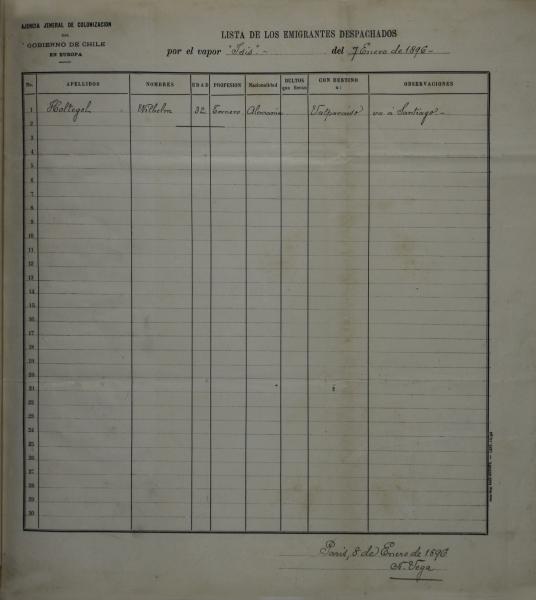 AJENCIA JENERAL DE COLONIZACION
DEL
GOBIERNO DE CHILE
EN EUROPA
LISTA DE LOS EMIGRANTES DESPACHADOS
por el vapor "Isis" del 7 Enero de 1896
No. APELLIDOS NOMBRES EDAD PROFESION Nacionalidad BULTOS que llevan CON DESTINO a: OBSERVACIONES
1 Holtegel Wilhelm 32 Tornero Alemania Valparaiso va á Santiago
2
3
4
5
6
7
8
9
10
11
12
13
14
15
16
17
18
19
20
21
22
23
24
25
26
27
28
29
30
Paris, 8 de Enero de 1896
N. Vega